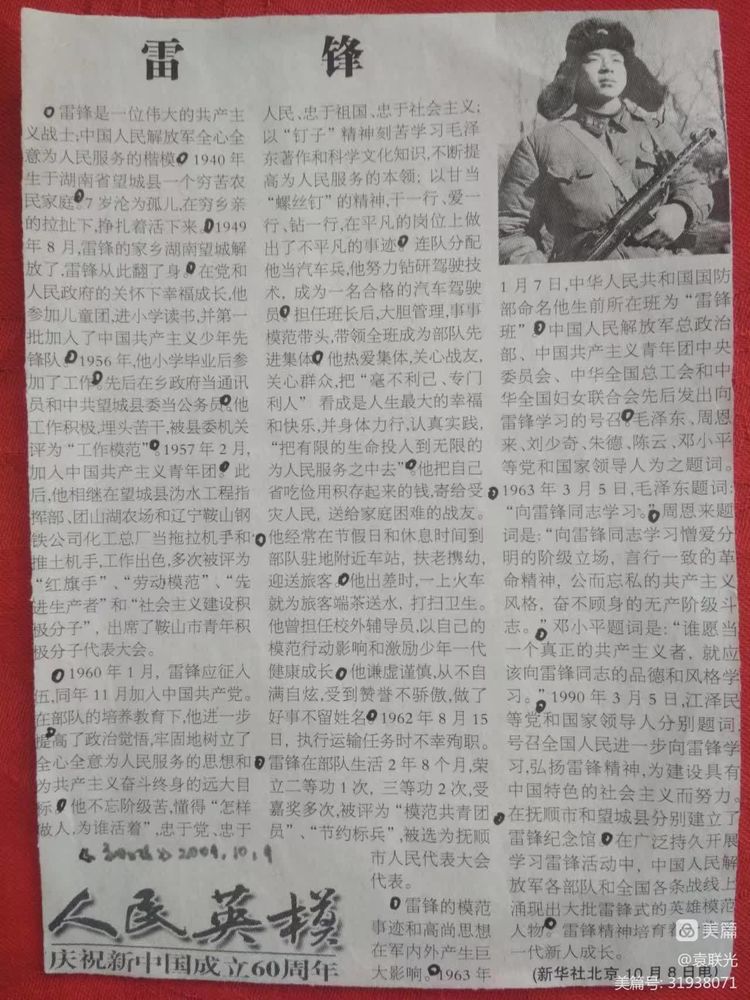 雷 锋
雷锋是一位伟大的共产主
义战士,中国人民解放军全心全
意为人民服务的楷模。1940年
生于湖南省望城县一个穷苦农
民家庭。7岁沦为孤儿,在穷乡亲
的拉扯下,挣扎着活下来。1949
年8月,雷锋的家乡湖南望城解
放了,雷锋从此翻了身。在党和
人民政府的关怀下幸福成长,他
参加儿童团,进小学读书,并第一
批加入了中国共产主义少年先
锋队。1956年,他小学毕业后参
加了工作。先后在乡政府当通讯
员和中共望城县委当公务员。他
工作积极,埋头苦干,被县委机关
评为“工作模范”。1957年2月,
加入中国共产主义青年团。此
后,他相继在望城县沩水工程指
挥部、团山湖农场和辽宁鞍山钢
铁公司化工总厂当拖拉机手和
推土机手,工作出色,多次被评为
“红旗手”、“劳动模范”、“先
进生产者”和“社会主义建设积
极分子”，出席了鞍山市青年积
极分子代表大会。
1960年1月,雷锋应征入
伍,同年11月加入中国共产党。
在部队的培养教育下,他进一步
提高了政治觉悟,牢固地树立了
全心全意为人民服务的思想和
为共产主义奋斗终身的远大目
标。他不忘阶级苦,懂得“怎样
做人,为谁活着”,忠于党、忠于
人民、忠于祖国、忠于社会主义;
以“钉子”精神刻苦学习毛泽
东著作和科学文化知识,不断提
高为人民服务的本领;以甘当
“螺丝钉”的精神,干一行、爱一
行、钻一行,在平凡的岗位上做
出了不平凡的事迹。连队分配
他当汽车兵,他努力钻研驾驶技
术,成为一名合格的汽车驾驶
员。担任班长后,大胆管理,事事
模范带头,带领全班成为部队先
进集体。他热爱集体,关心战友,
关心群众,把“毫不利己、专门
利人”看成是人生最大的幸福
和快乐,并身体力行,认真实践,
“把有限的生命投入到无限的
为人民服务之中去”。他把自己
省吃俭用积存起来的钱,寄给受
灾人民,送给家庭困难的战友。
他经常在节假日和休息时间到
部队驻地附近车站,扶老携幼,
迎送旅客。他出差时,一上火车
就为旅客端茶送水,打扫卫生。
他曾担任校外辅导员,以自己的
模范行动影响和激励少年一代
健康成长。他谦虚谨慎,从不自
满自炫,受到赞誉不骄傲,做了
好事不留姓名。1962年8月15
日,执行运输任务时不幸殉职。
雷锋在部队生活2年8个月,荣
立二等功1次,三等功2次,受
嘉奖多次,被评为“模范共青团
员”、“节约标兵”,被选为抚顺
市人民代表大会
代表。
雷锋的模范
事迹和高尚思想
在军内外产生巨
大影响。1963年
1月7日,中华人民共和国国防
部命名他生前所在班为“雷锋
班”。中国人民解放军总政治
部、中国共产主义青年团中央
委员会、中华全国总工会和中
华全国妇女联合会先后发出向
雷锋学习的号召。毛泽东、周恩
来、刘少奇、朱德、陈云、邓小平
等党和国家领导人为之题词。
1963年3月5日,毛泽东题词:
“向雷锋同志学习。”周恩来题
词是:“向雷锋同志学习憎爱分
明的阶级立场,言行一致的革
命精神,公而忘私的共产主义
风格,奋不顾身的无产阶级斗
志。”邓小平题词是:“谁愿当
一个真正的共产主义者,就应
该向雷锋同志的品德和风格学
习。”1990年3月5日,江泽民
等党和国家领导人分别题词,
号召全国人民进一步向雷锋学
习,弘扬雷锋精神,为建设具有
中国特色的社会主义而努力。
在抚顺市和望城县分别建立了
雷锋纪念馆。在广泛持久开展
学习雷锋活动中,中国人民解
放军各部队和全国各条战线上
涌现出大批雷锋式的英雄模范
人物。雷锋精神培育着
一代新人成长。
(新华社北京10月8日电)
2009.10.9
人民英模
庆祝新中国成立60周年
美篇
@袁联光
美篇号: 31938071